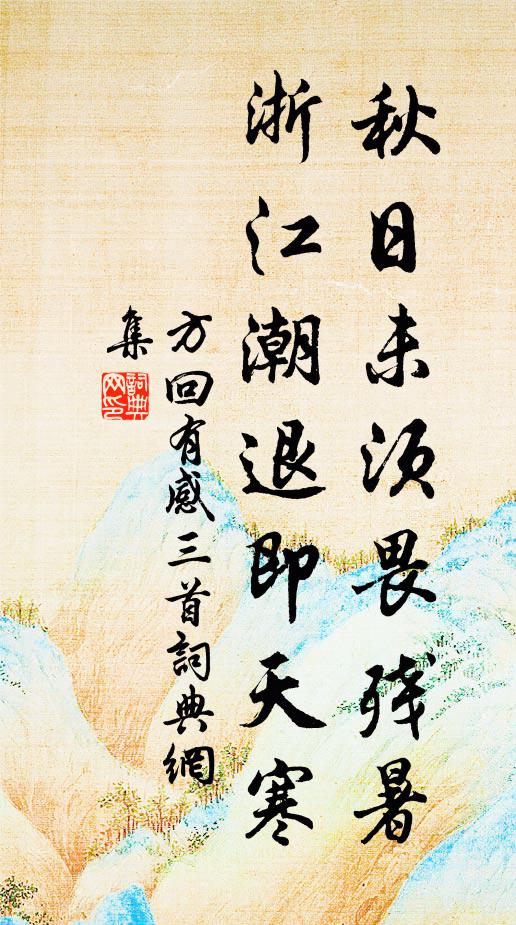 秋日未须畏残暑
浙江潮退即天寒
方回有感三首詞典網
集
詞典网印